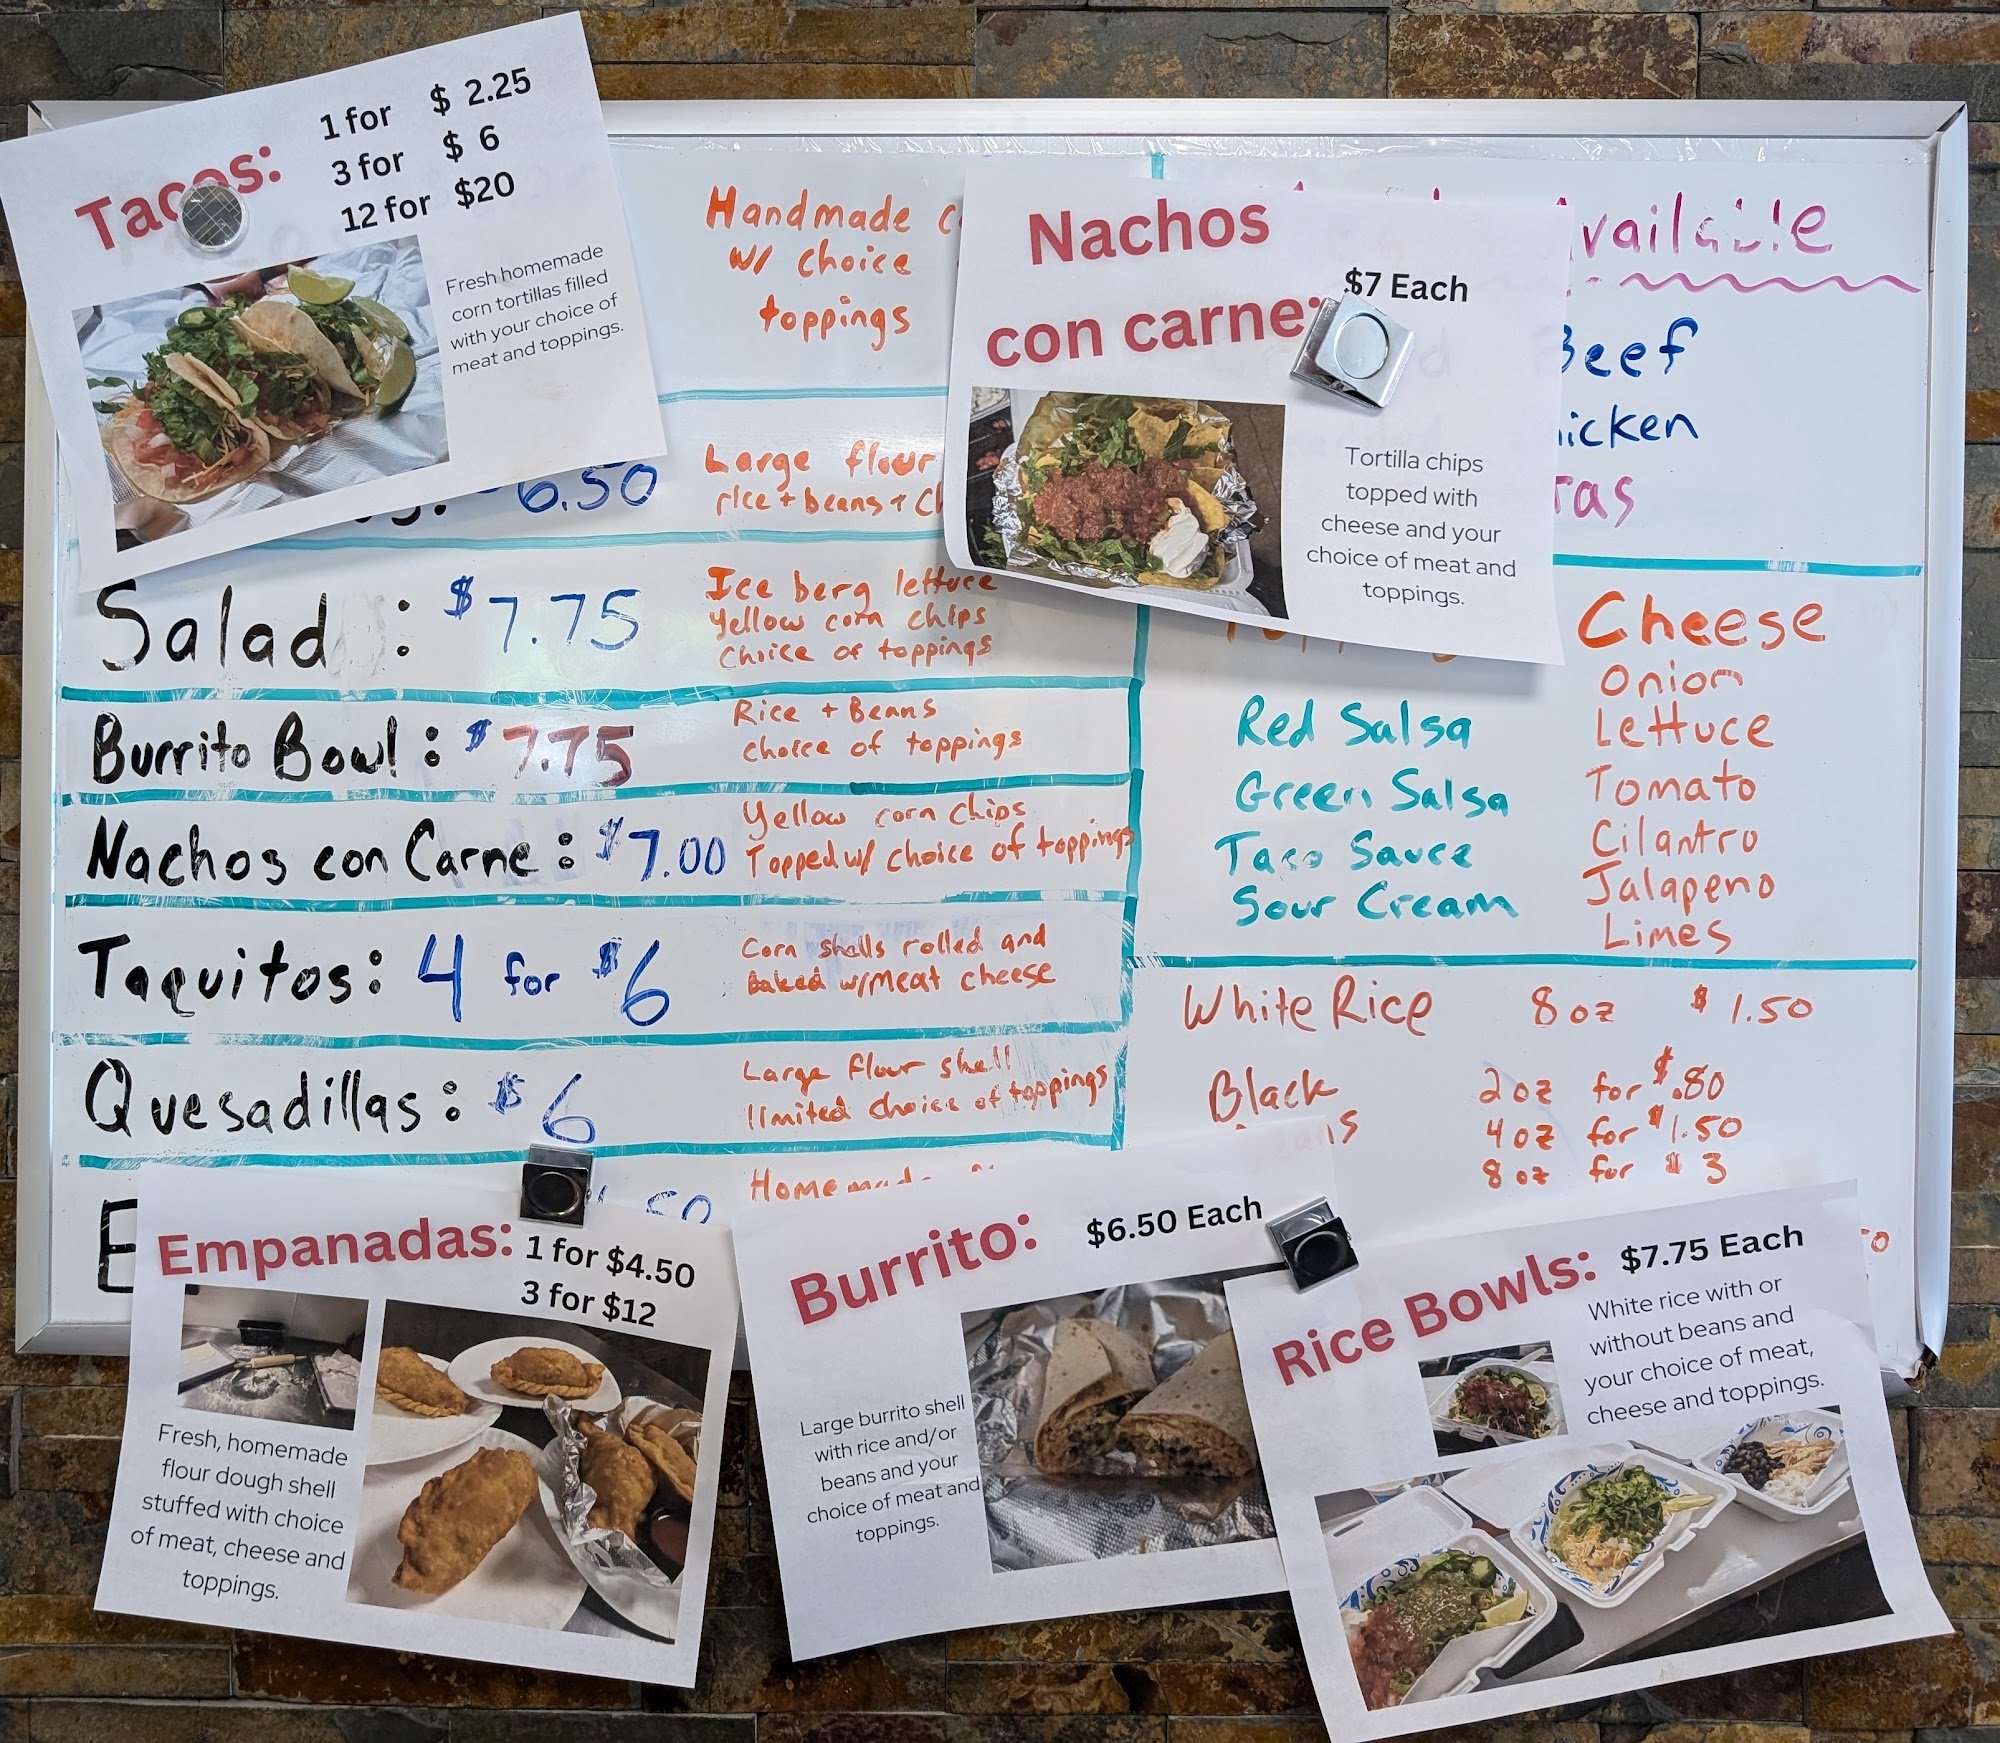 Tacos:
1 for $ 2.25
3 for $ 6
12 for $20
Fresh homemade
corn tortillas filled
with your choice of
meat and toppings.
Handmade
w/ choice
toppings
6.50
Large flour
rice + beans +
Salad : $7.75
Ice berg lettuce
Yellow corn chips
Choice of toppings
Burrito Bowl : $7.75
Rice + Beans
choice of toppings
Nachos con Carne : $7.00
Yellow corn chips
Topped w/ choice of toppings
Taquitos: 4 for $6
Corn shells rolled and
baked w/meat cheese
Quesadillas : $6
Large flour shell
limited choice of toppings
Nachos
con carne:
$7 Each
Tortilla chips
topped with
cheese and your
choice of meat and
toppings.
Available
Beef
Red Salsa
Green Salsa
Taco Sauce
Sour Cream
Cheese
Onion
Lettuce
Tomato
Cilantro
Jalapeno
Limes
White Rice 8 oz $ 1.50
Black
2 oz for $.80
4 oz for $1.50
8 oz for $ 3
Empanadas:
1 for $4.50
3 for $12
Fresh, homemade
flour dough shell
stuffed with choice
of meat, cheese and
toppings.
Burrito:
$6.50 Each
Large burrito shell
with rice and/or
beans and your
choice of meat and
toppings.
Rice Bowls:
$7.75 Each
White rice with or
without beans and
your choice of meat,
cheese and toppings.